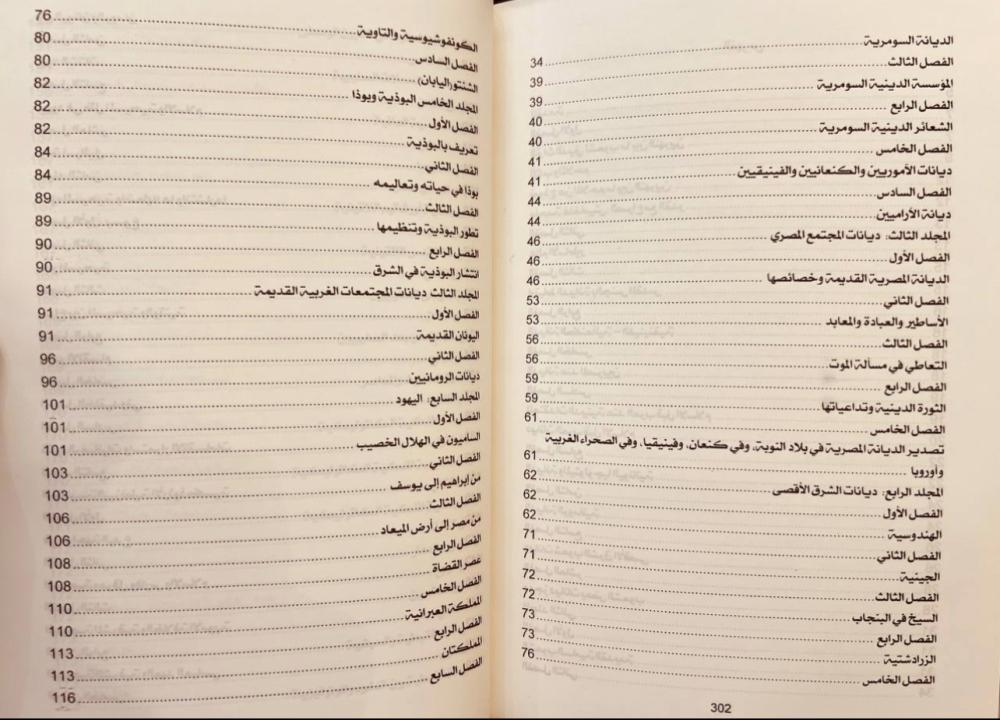 الديانة السومرية 34
الفصل الثالث 39
المؤسسة الدينية السومرية 39
الفصل الرابع 40
الشعائر الدينية السومرية 40
الفصل الخامس 41
ديانات الأموريين والكنعانيين والفينيقيين 41
الفصل السادس 44
ديانة الأراميين 44
المجلد الثالث: ديانات المجتمع المصري 46
الفصل الأول 46
الديانة المصرية القديمة وخصائصها 46
الفصل الثاني 53
الأساطير والعبادة والمعابد 53
الفصل الثالث 56
التعاطي في مسألة الموت 56
الفصل الرابع 59
الثورة الدينية وتداعياتها 59
الفصل الخامس 61
تصدير الديانة المصرية في بلاد النوبة، وفي كنعان، وفينيقيا، وفي الصحراء الغربية
وأوروبا 61
المجلد الرابع: ديانات الشرق الأقصى 62
الفصل الأول 62
الهندوسية 62
الفصل الثاني 71
الجينية 71
الفصل الثالث 72
السيخ في البنجاب 72
الفصل الرابع 73
الزرادشتية 73
الفصل الخامس 76
302
الكونفوشيوسية والتاوية 76
الفصل السادس 80
الشنتو(اليابان) 80
المجلد الخامس البوذية وبوذا 82
الفصل الأول 82
تعريف بالبوذية 82
الفصل الثاني 84
بوذا في حياته وتعاليمه 84
الفصل الثالث 89
تطور البوذية وتنظيمها 89
الفصل الرابع 90
انتشار البوذية في الشرق 90
المجلد الثالث ديانات المجتمعات الغربية القديمة 91
الفصل الأول 91
اليونان القديمة 91
الفصل الثاني 96
ديانات الرومانيين 96
المجلد السابع: اليهود 101
الفصل الأول 101
الساميون في الهلال الخصيب 101
الفصل الثاني 103
من إبراهيم إلى يوسف 103
الفصل الثالث 106
من مصر إلى أرض الميعاد 106
الفصل الرابع 108
عصر القضاة 108
الفصل الخامس 110
المملكة العبرانية 110
الفصل الرابع 113
المملكتان 113
الفصل السابع 116